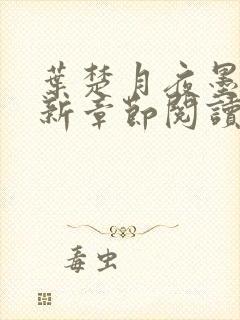 葉楚月夜墨
新章節閱讀
毒虫